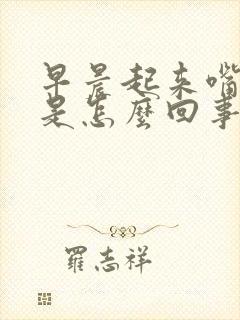 早晨起来嘴
是怎麼回事
羅志祥